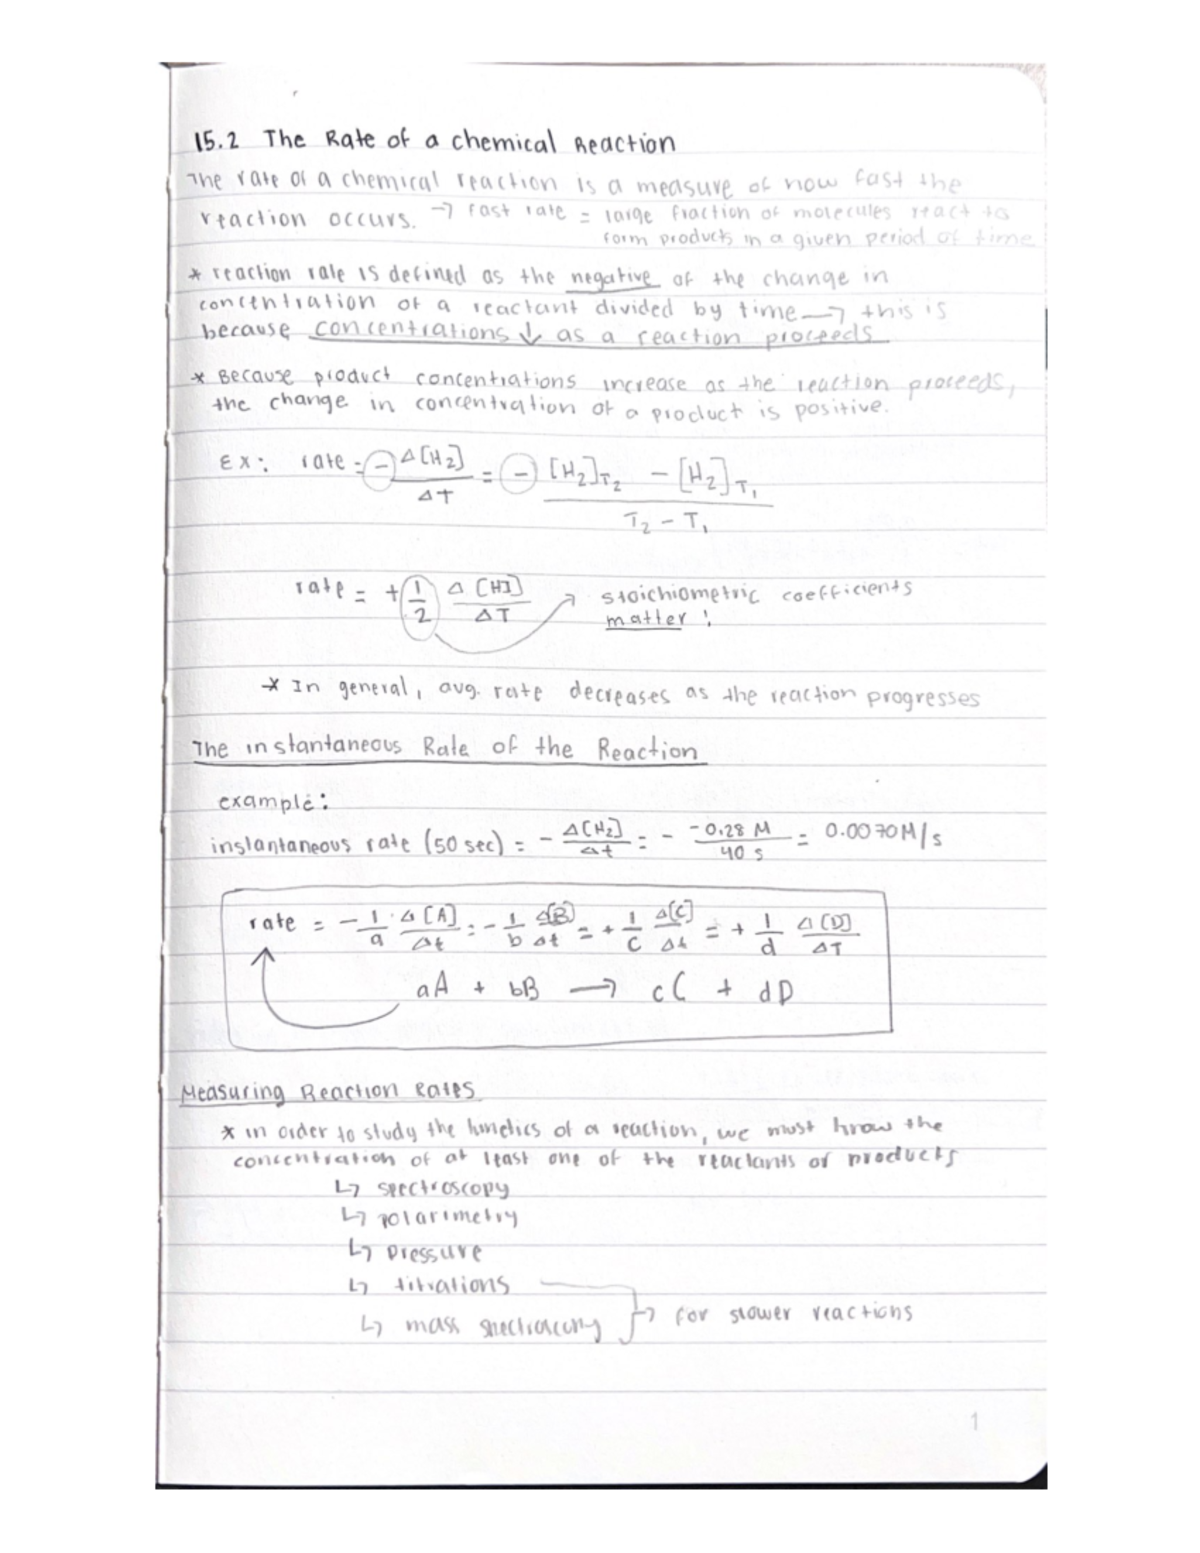 15.2 The Rate of a chemical Reaction
The rate of a chemical reaction is a measure of how fast the
reaction occurs. → fast rate = large fraction of molecules react to
form products in a given period of time
* reaction rate is defined as the negative of the change in
concentration of a reactant divided by time → this is
because concentrations ↓ as a reaction proceeds
* Because product concentrations increase as the reaction proceeds,
the change in concentration of a product is positive.
Ex: rate = - Δ[H2]/ΔT = - [H2]T2 - [H2]T1 / T2 - T1
rate = + 1/2 Δ[HI]/ΔT → stoichiometric coefficients
matter!
* In general, avg. rate decreases as the reaction progresses
The instantaneous Rate of the Reaction
example:
instantaneous rate (50 sec) = - Δ[H2]/Δt = - -0.28 M/40 s = 0.0070 M/s
rate = - 1/a · Δ[A]/Δt = - 1/b Δ[B]/Δt = + 1/c Δ[C]/Δt = + 1/d Δ[D]/ΔT
aA + bB → cC + dD
Measuring Reaction Rates
* in order to study the kinetics of a reaction, we must know the
concentration of at least one of the reactants or products
↳ spectroscopy
↳ polarimetry
↳ pressure
↳ titrations
↳ mass spectroscopy → for slower reactions
1